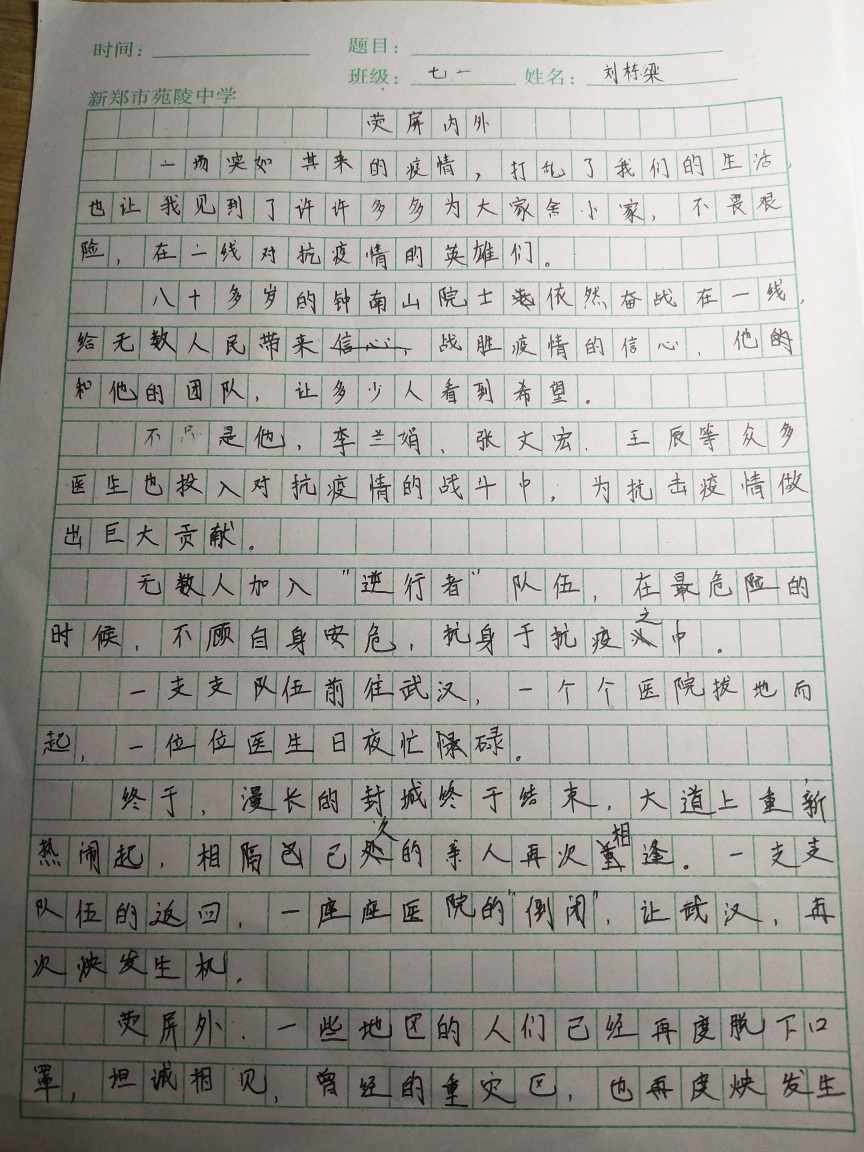 时间： 题目：
班级：七一 姓名：刘栋梁
新郑市苑陵中学
荧屏内外
一场突如其来的疫情，打乱了我们的生活，
也让我见到了许许多多为大家舍小家，不畏艰
险，在一线对抗疫情的英雄们。
八十多岁的钟南山院士依然奋战在一线，
给无数人民带来战胜疫情的信心，他
和他的团队，让多少人看到希望。
不只是他，李兰娟、张文宏、王辰等众多
医生也投入对抗疫情的战斗中，为抗击疫情做
出巨大贡献。
无数人加入“逆行者”队伍，在最危险的
时候，不顾自身安危，抗身于抗疫之中。
一支支队伍前往武汉，一个个医院拔地而
起，一位位医生日夜忙碌。
终于，漫长的封城终于结束，大道上重新
热闹起，相隔已久的亲人再次相逢。一支支
队伍的返回，一座座医院的“倒闭”，让武汉，再
次焕发生机。
荧屏外，一些地区的人们已经再度脱下口
罩，坦诚相见，曾经的重灾区，也再度焕发生